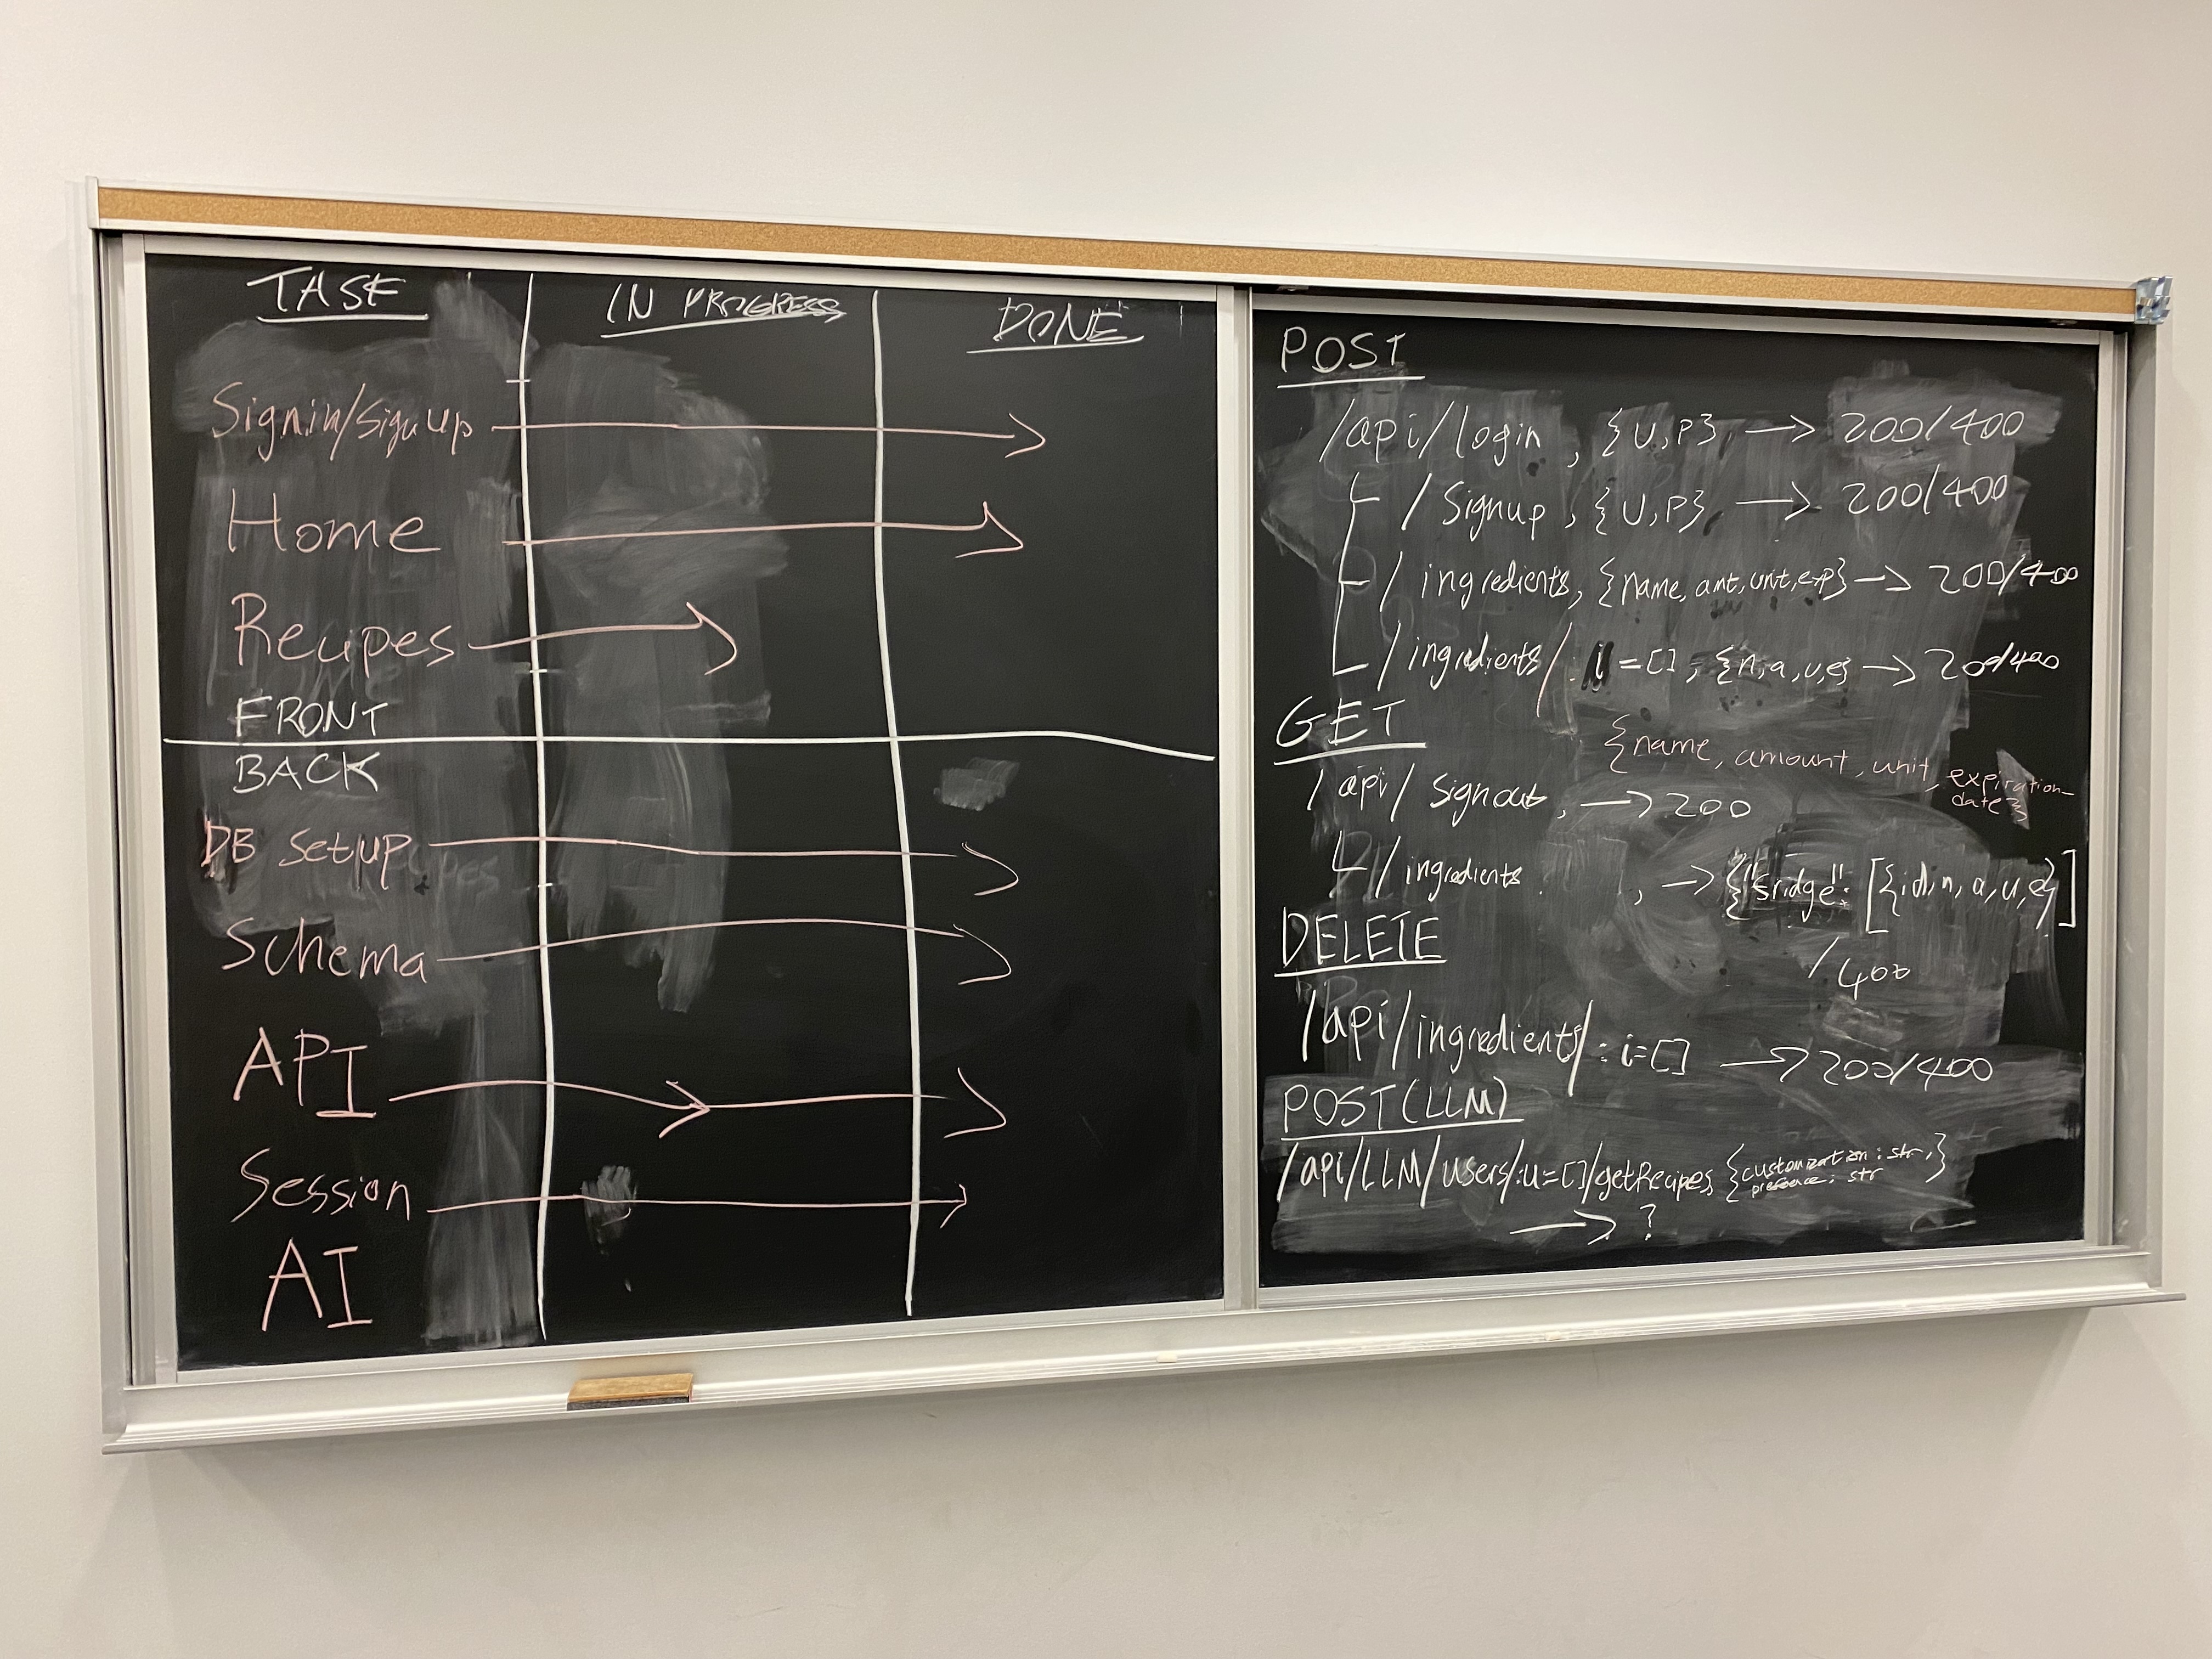 TASK IN PROGRESS DONE
Signin/Signup
Home
Recipes
FRONT
BACK
DB Setup
Schema
API
Session
AI
POST
/api/login, {U,P} → 200/400
/Signup, {U,P} → 200/400
/ingredients, {name, amt, unit, exp} → 200/400
/ingredients/:i=[], {n,a,u,e} → 200/400
GET
{name, amount, unit, expiration-
date}
/api/signout, → 200
/ingredients , → {"fridge": [{id,n,a,u,e}]
/400
DELETE
/api/ingredients/:i=[] → 200/400
POST(LLM)
/api/LLM/users/:u=[]/getRecipes {customization: str,
: str}
→ ?